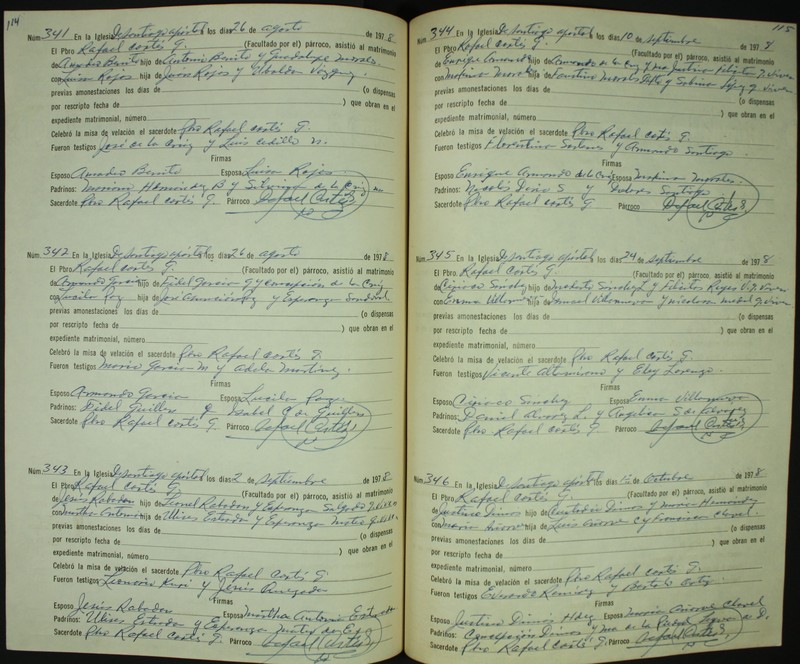 114
Núm. 341 En la Iglesia de Santiago apóstol los días 26 de agosto de 1978
El Pbro. Rafael Cortés G. (Facultado por el) párroco, asistió al matrimonio
de Amadeo Benito hijo de Antonio Benito y Guadalupe Morales
con Luisa Rojas hija de Juan Rojas y Ubalda Vázquez.
previas amonestaciones los días de (o dispensas
por rescripto fecha de ) que obran en el
expediente matrimonial, número
Celebró la misa de velación el sacerdote Pbro Rafael Cortés G.
Fueron testigos José de la Cruz y Luis Cedillo M.
Firmas
Esposo Amadeo Benito Esposa Luisa Rojas
Padrinos: Hernández B y de la Cruz
Sacerdote Pbro Rafael Cortés G Párroco Rafael Cortés G.
Núm. 342 En la Iglesia de Santiago apóstol los días 26 de agosto de 1978
El Pbro. Rafael Cortés G. (Facultado por el) párroco, asistió al matrimonio
de Armando García hijo de Fidel García G y Concepción de la Cruz
con Lucila hija de José y Esperanza Sandoval
previas amonestaciones los días de (o dispensas
por rescripto fecha de ) que obran en el
expediente matrimonial, número
Celebró la misa de velación el sacerdote Pbro Rafael Cortés G.
Fueron testigos Mario García M y Adela Martínez.
Firmas
Esposo Armando García Esposa Lucila
Padrinos: Fidel Guillen e Isabel C de Guillen
Sacerdote Pbro Rafael Cortés G. Párroco Rafael Cortés G.
Núm. 343 En la Iglesia de Santiago apóstol los días 2 de Septiembre de 1978
El Pbro. Rafael Cortés G. (Facultado por el) párroco, asistió al matrimonio
de Jesús Rabadan hijo de Leonel Rabadan y Esperanza Salgado
con Martha Antonia hija de Ulises Estrada y Esperanza
previas amonestaciones los días de (o dispensas
por rescripto fecha de ) que obran en el
expediente matrimonial, número
Celebró la misa de velación el sacerdote Pbro Rafael Cortés G
Fueron testigos y Jesús
Firmas
Esposo Jesús Rabadan Esposa Martha Antonia Estrada
Padrinos: Ulises Estrada y Esperanza
Sacerdote Pbro Rafael Cortés G. Párroco Rafael Cortés G.
115
Núm. 344 En la Iglesia de Santiago apóstol los días 10 de Septiembre de 1978
El Pbro. Rafael Cortés G. (Facultado por el) párroco, asistió al matrimonio
de Enrique Armando hijo de Armando de la Cruz y Ma
con Marina Morales hija de Faustino Morales y Sabina López
previas amonestaciones los días de (o dispensas
por rescripto fecha de ) que obran en el
expediente matrimonial, número
Celebró la misa de velación el sacerdote Pbro Rafael Cortés G.
Fueron testigos Florentino y Armando Santiago
Firmas
Esposo Enrique Armando de la Cruz Esposa Marina Morales
Padrinos: Nicolás S y Dolores Santiago
Sacerdote Pbro Rafael Cortés G Párroco Rafael Cortés G.
Núm. 345 En la Iglesia de Santiago apóstol los días 24 de Septiembre de 1978
El Pbro. Rafael Cortés G. (Facultado por el) párroco, asistió al matrimonio
de Ciriaco Sánchez hijo de Sánchez y Reyes
con Emma Villanueva hija de Manuel Villanueva y
previas amonestaciones los días de (o dispensas
por rescripto fecha de ) que obran en el
expediente matrimonial, número
Celebró la misa de velación el sacerdote Pbro Rafael Cortés G.
Fueron testigos Vicente Altamirano y Eloy Lorenzo.
Firmas
Esposo Ciriaco Sánchez Esposa Emma Villanueva
Padrinos: Daniel L. y S de
Sacerdote Pbro Rafael Cortés G Párroco Rafael Cortés G
Núm. 346 En la Iglesia de Santiago apóstol los días 1º de Octubre de 1978
El Pbro. Rafael Cortés G. (Facultado por el) párroco, asistió al matrimonio
de Justino Dimas hijo de Dimas y María Hernández
con María hija de Luis y Francisca
previas amonestaciones los días de (o dispensas
por rescripto fecha de ) que obran en el
expediente matrimonial, número
Celebró la misa de velación el sacerdote Pbro Rafael Cortés G.
Fueron testigos Ramírez y Ortiz
Firmas
Esposo Justino Dimas Hdez Esposa María
Padrinos: Concepción Dimas y Ma de la
Sacerdote Pbro Rafael Cortés G. Párroco Rafael Cortés G.